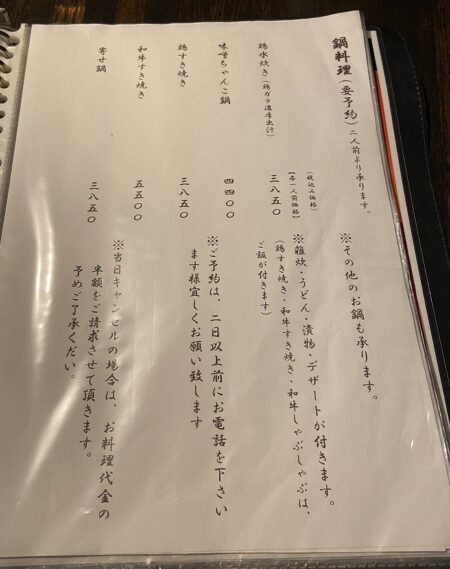 鍋料理(要予約)二人前より承ります。
(税込み価格)
【各一人前価格】
鶏水炊き(鶏ガラ濃厚出汁)
三八五〇
味噌ちゃんこ鍋
四四〇〇
鶏すき焼き
三八五〇
和牛すき焼き
五五〇〇
寄せ鍋
三八五〇
※その他のお鍋も承ります。
※雑炊・うどん・漬物・デザートが付きます。
(鶏すき焼き・和牛すき焼き・和牛しゃぶしゃぶは、
ご飯が付きます)
※ご予約は、二日以上前にお電話を下さい
ます様宜しくお願い致します
※当日キャンセルの場合は、お料理代金の
半額をご請求させて頂きます。
予めご了承くだい。